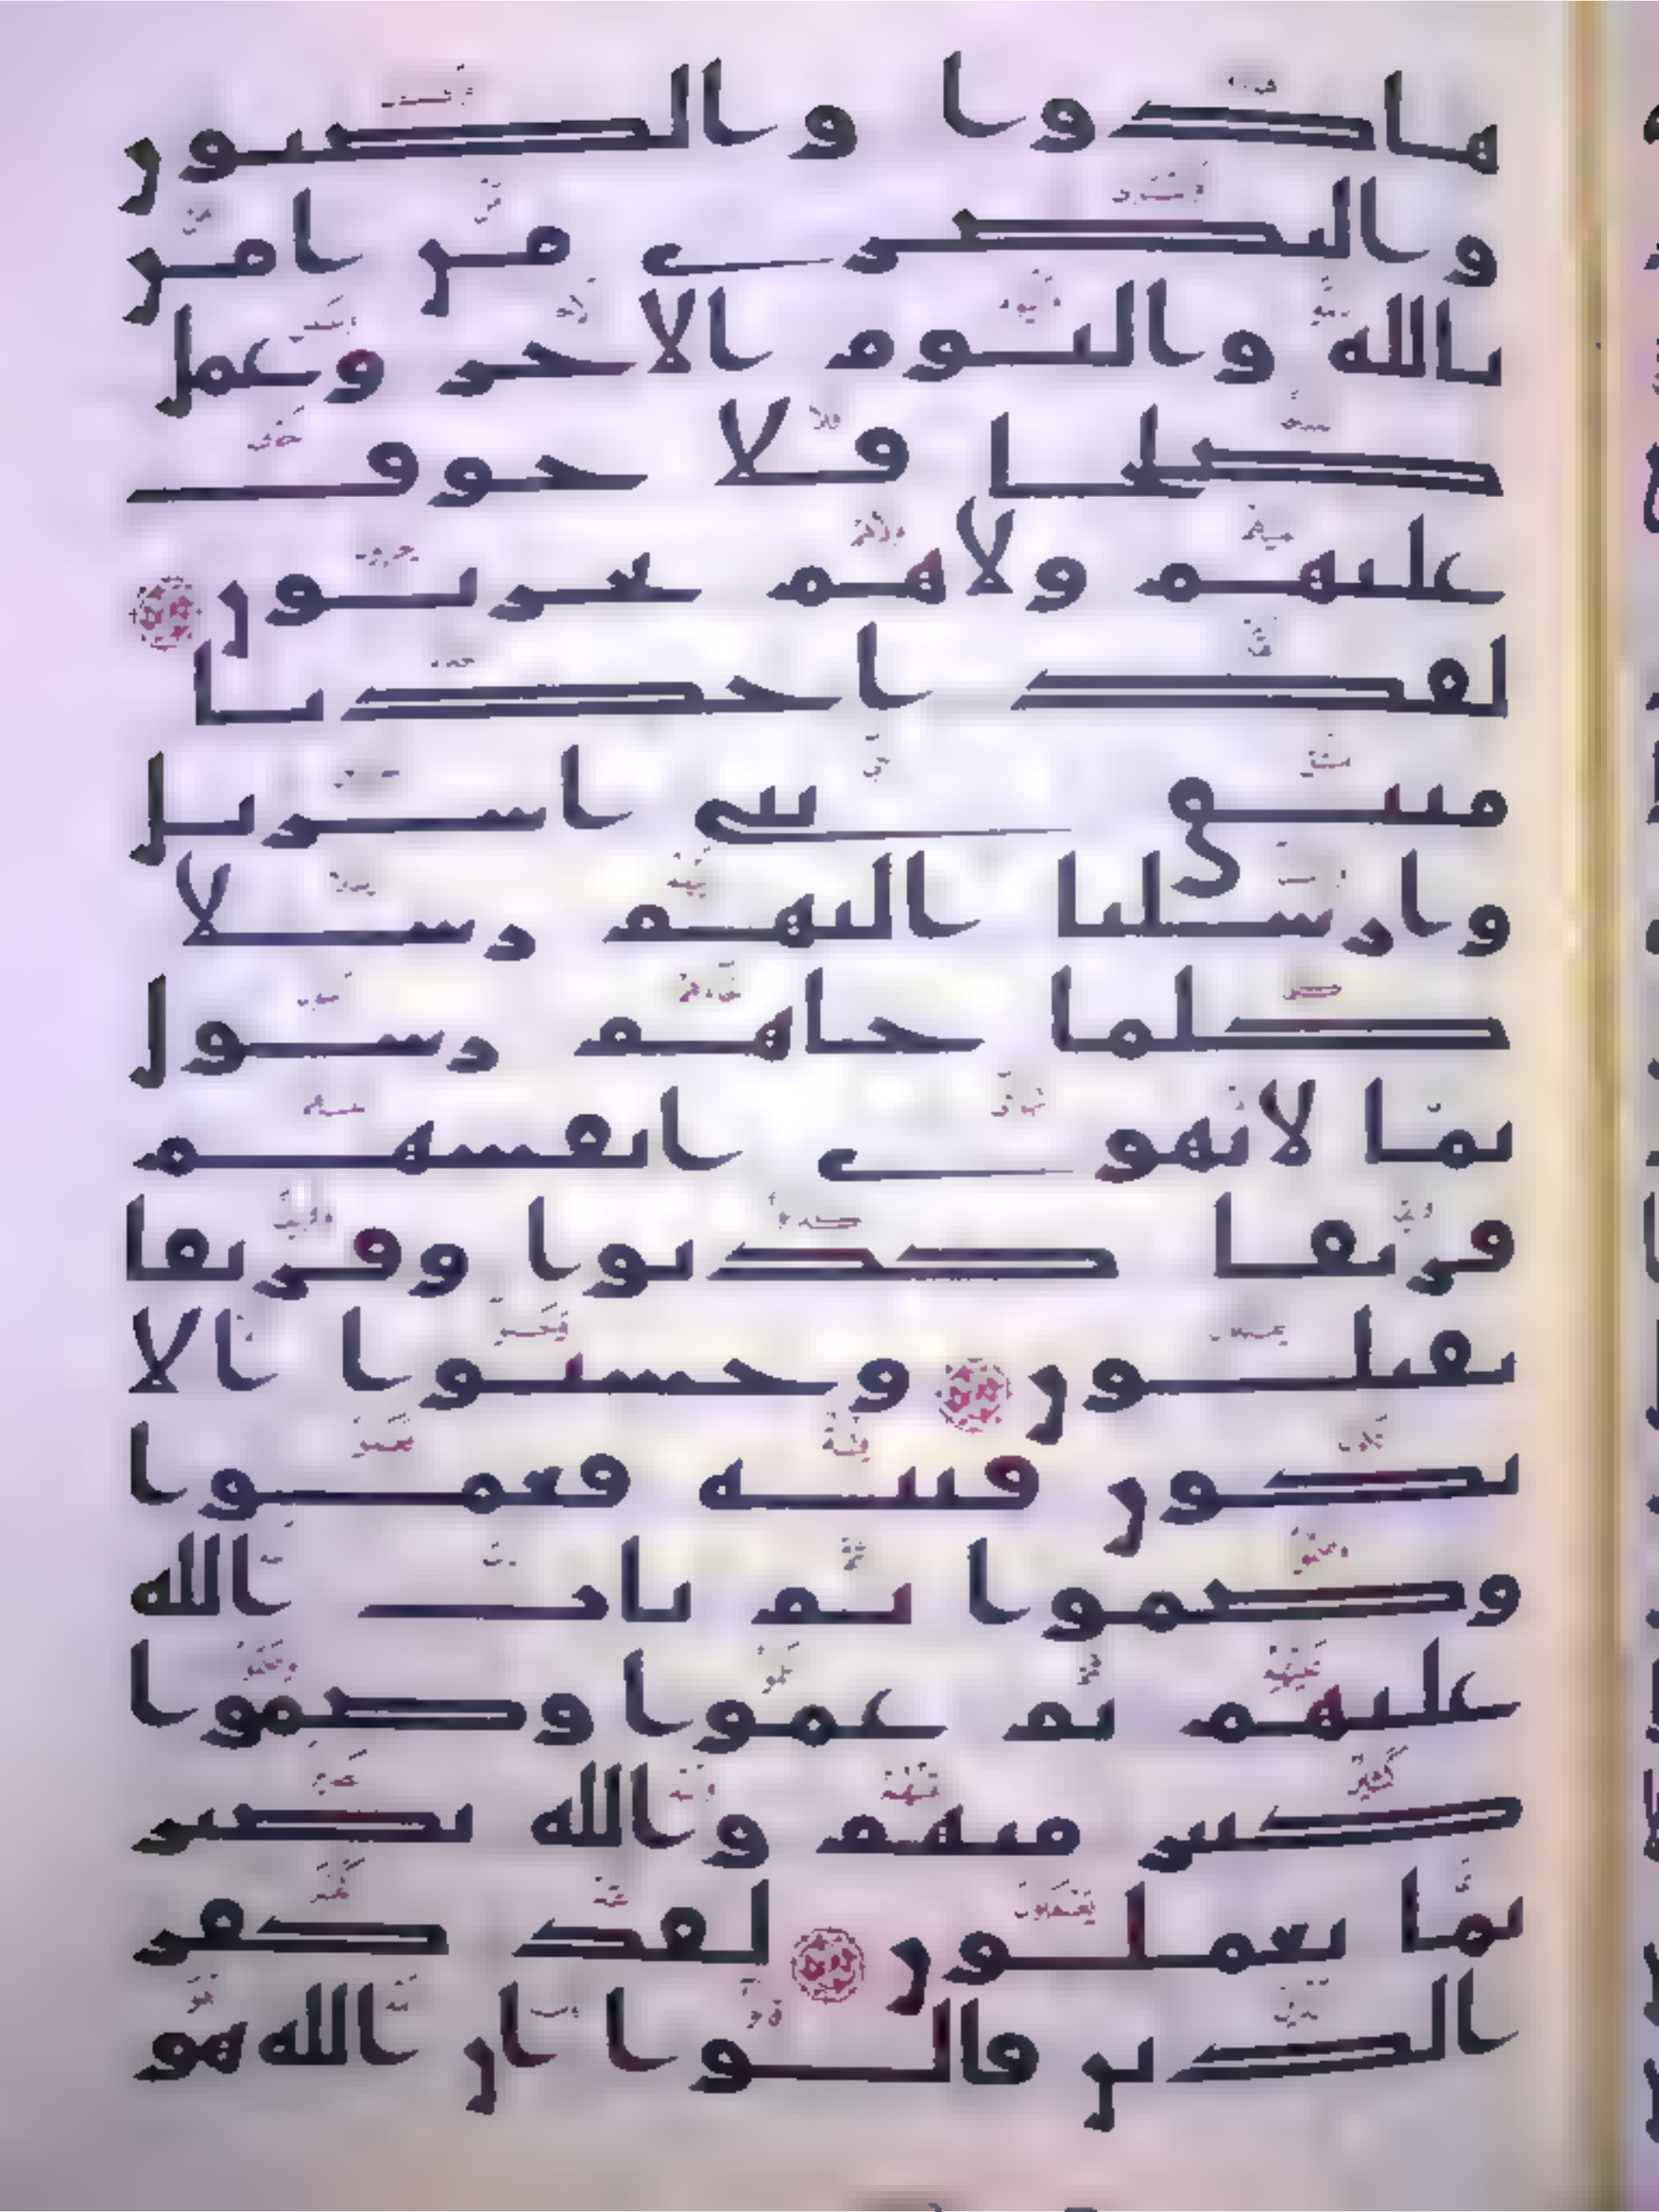 هادوا والصبون
والنصرى من امن
بالله واليوم الاخر وعمل
صلحا فلا خوف
عليهم ولا هم يحزنون
لقد اخذنا
ميثق بنى اسريل
وارسلنا اليهم رسلا
كلما جاهم رسول
بما لا تهوى انفسهم
فريقا كذبوا وفريقا
يقتلون وحسبوا الا
تكون فتنه فعموا
وصموا ثم تاب الله
عليهم ثم عموا وصموا
كثير منهم والله بصير
بما يعملون لقد كفر
الذين قالوا ان الله هو